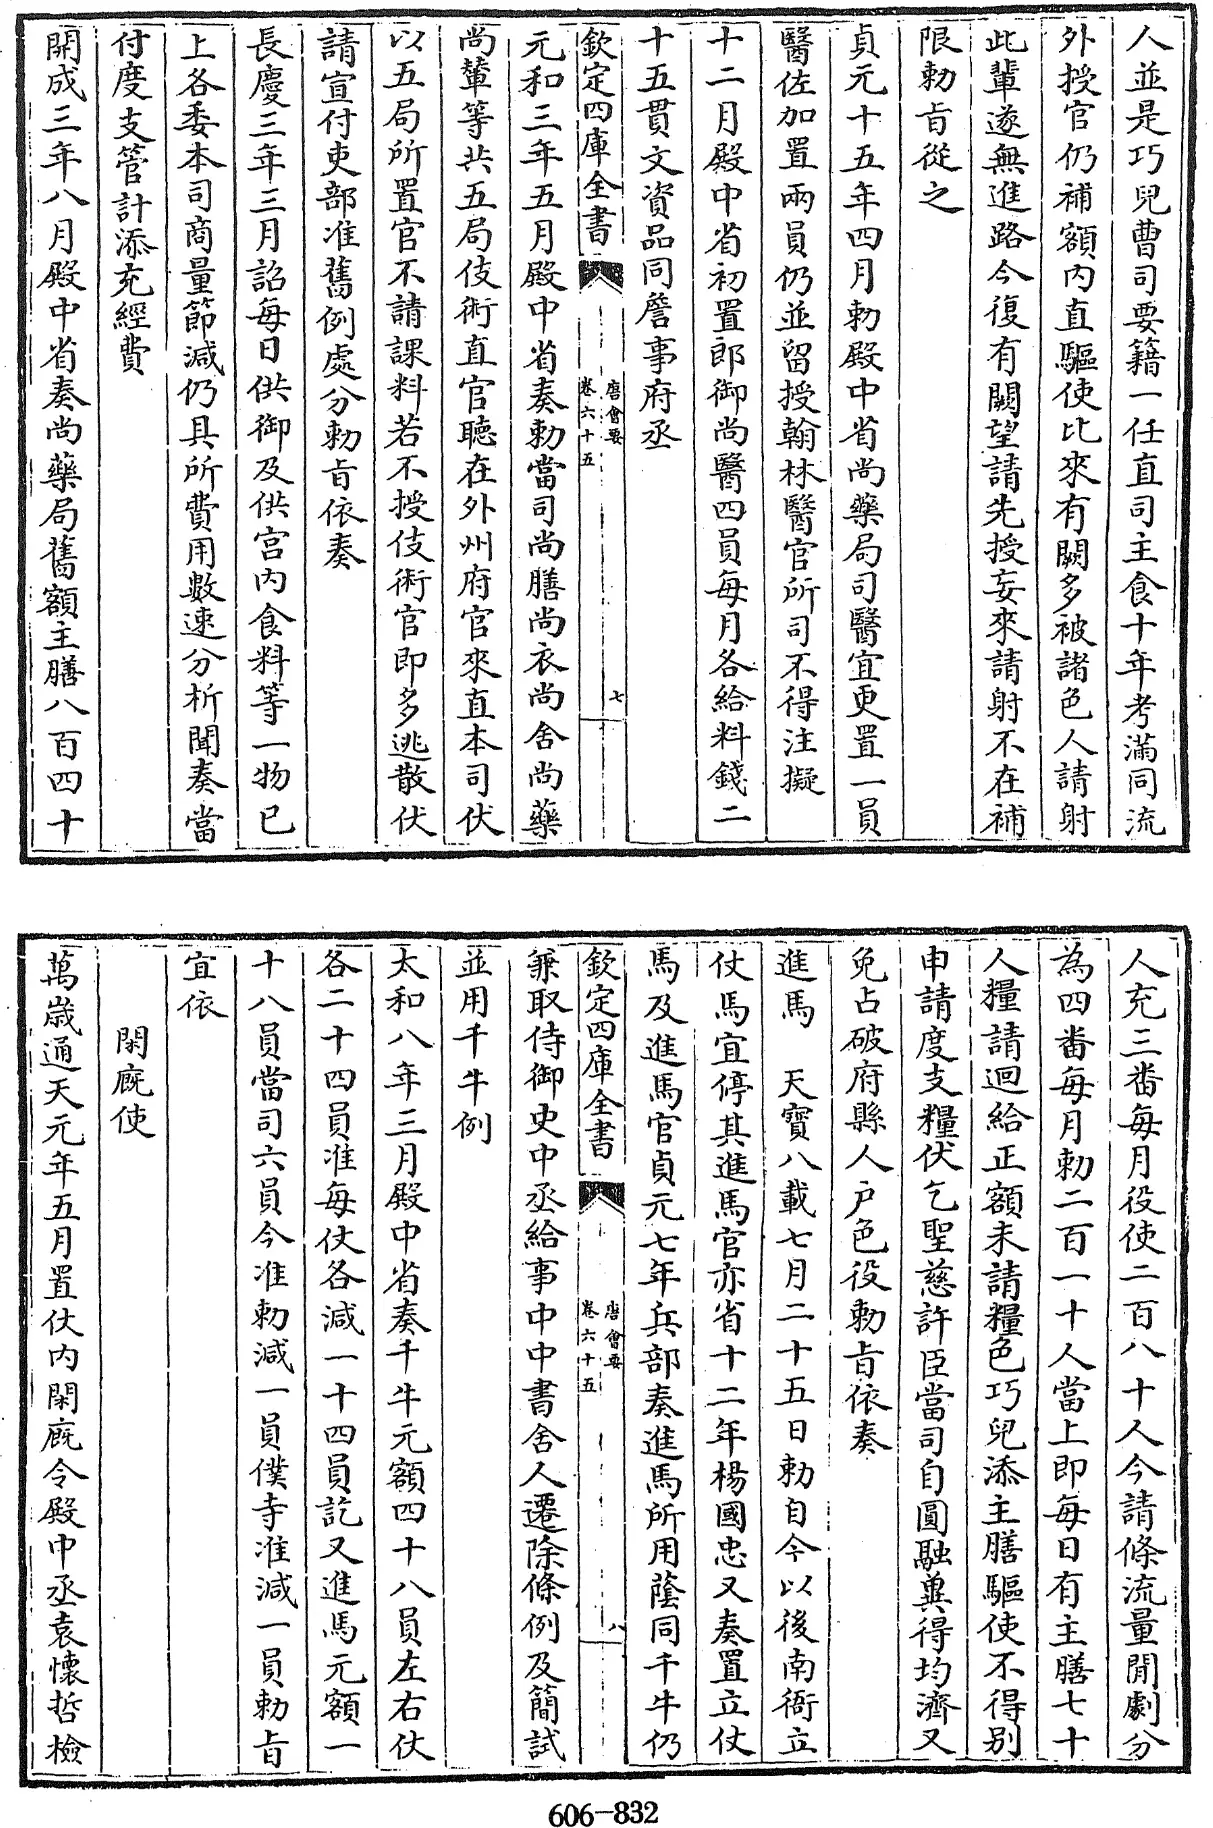 人並是巧兒曹司要籍一任直司主食十年考滿同流
外授官仍補額內直驅使比來有闕多被諸色人請射
此輩遂無進路今復有闕望請先授妄來請射不在補
限勅旨從之
貞元十五年四月勅殿中省尚藥局司醫宜更置一員
醫佐加置兩員仍並留授翰林醫官所司不得注擬
十二月殿中省初置郎御尚醫四員每月各給料錢二
十五貫文資品同詹事府丞
欽定四庫全書
唐會要
卷六十五
七
元和三年五月殿中省奏勅當司尚膳尚衣尚舍尚藥
尚輦等共五局伎術直官聽在外州府官來直本司伏
以五局所置官不請課料若不授伎術官即多逃散伏
請宣付吏部准舊例處分勅旨依奏
長慶三年三月詔每日供御及供宮內食料等一物已
上各委本司商量節減仍具所費用數速分析聞奏當
付度支管計添充經費
開成三年八月殿中省奏尚藥局舊額主膳八百四十
人充三番每月役使二百八十人今請條流量閒劇分
為四番每月勅二百一十人當上即每日有主膳七十
人糧請迴給正額未請糧色巧兒添主膳驅使不得别
申請度支糧伏乞聖慈許臣當司自圓融兾得均濟又
免占破府縣人户色役勅旨依奏
進馬 天寶八載七月二十五日勅自今以後南衙立
仗馬宜停其進馬官亦省十二年楊國忠又奏置立仗
馬及進馬官貞元七年兵部奏進馬所用蔭同千牛仍
欽定四庫全書
唐會要
卷六十五
八
兼取侍御史中丞給事中中書舍人遷除條例及簡試
並用千牛例
太和八年三月殿中省奏千牛元額四十八員左右仗
各二十四員准每仗各減一十四員訖又進馬元額一
十八員當司六員今准勅減一員僕寺准減一員勅旨
宜依
閑廐使
萬歲通天元年五月置仗內閑廐令殿中丞袁懷哲檢
606-832